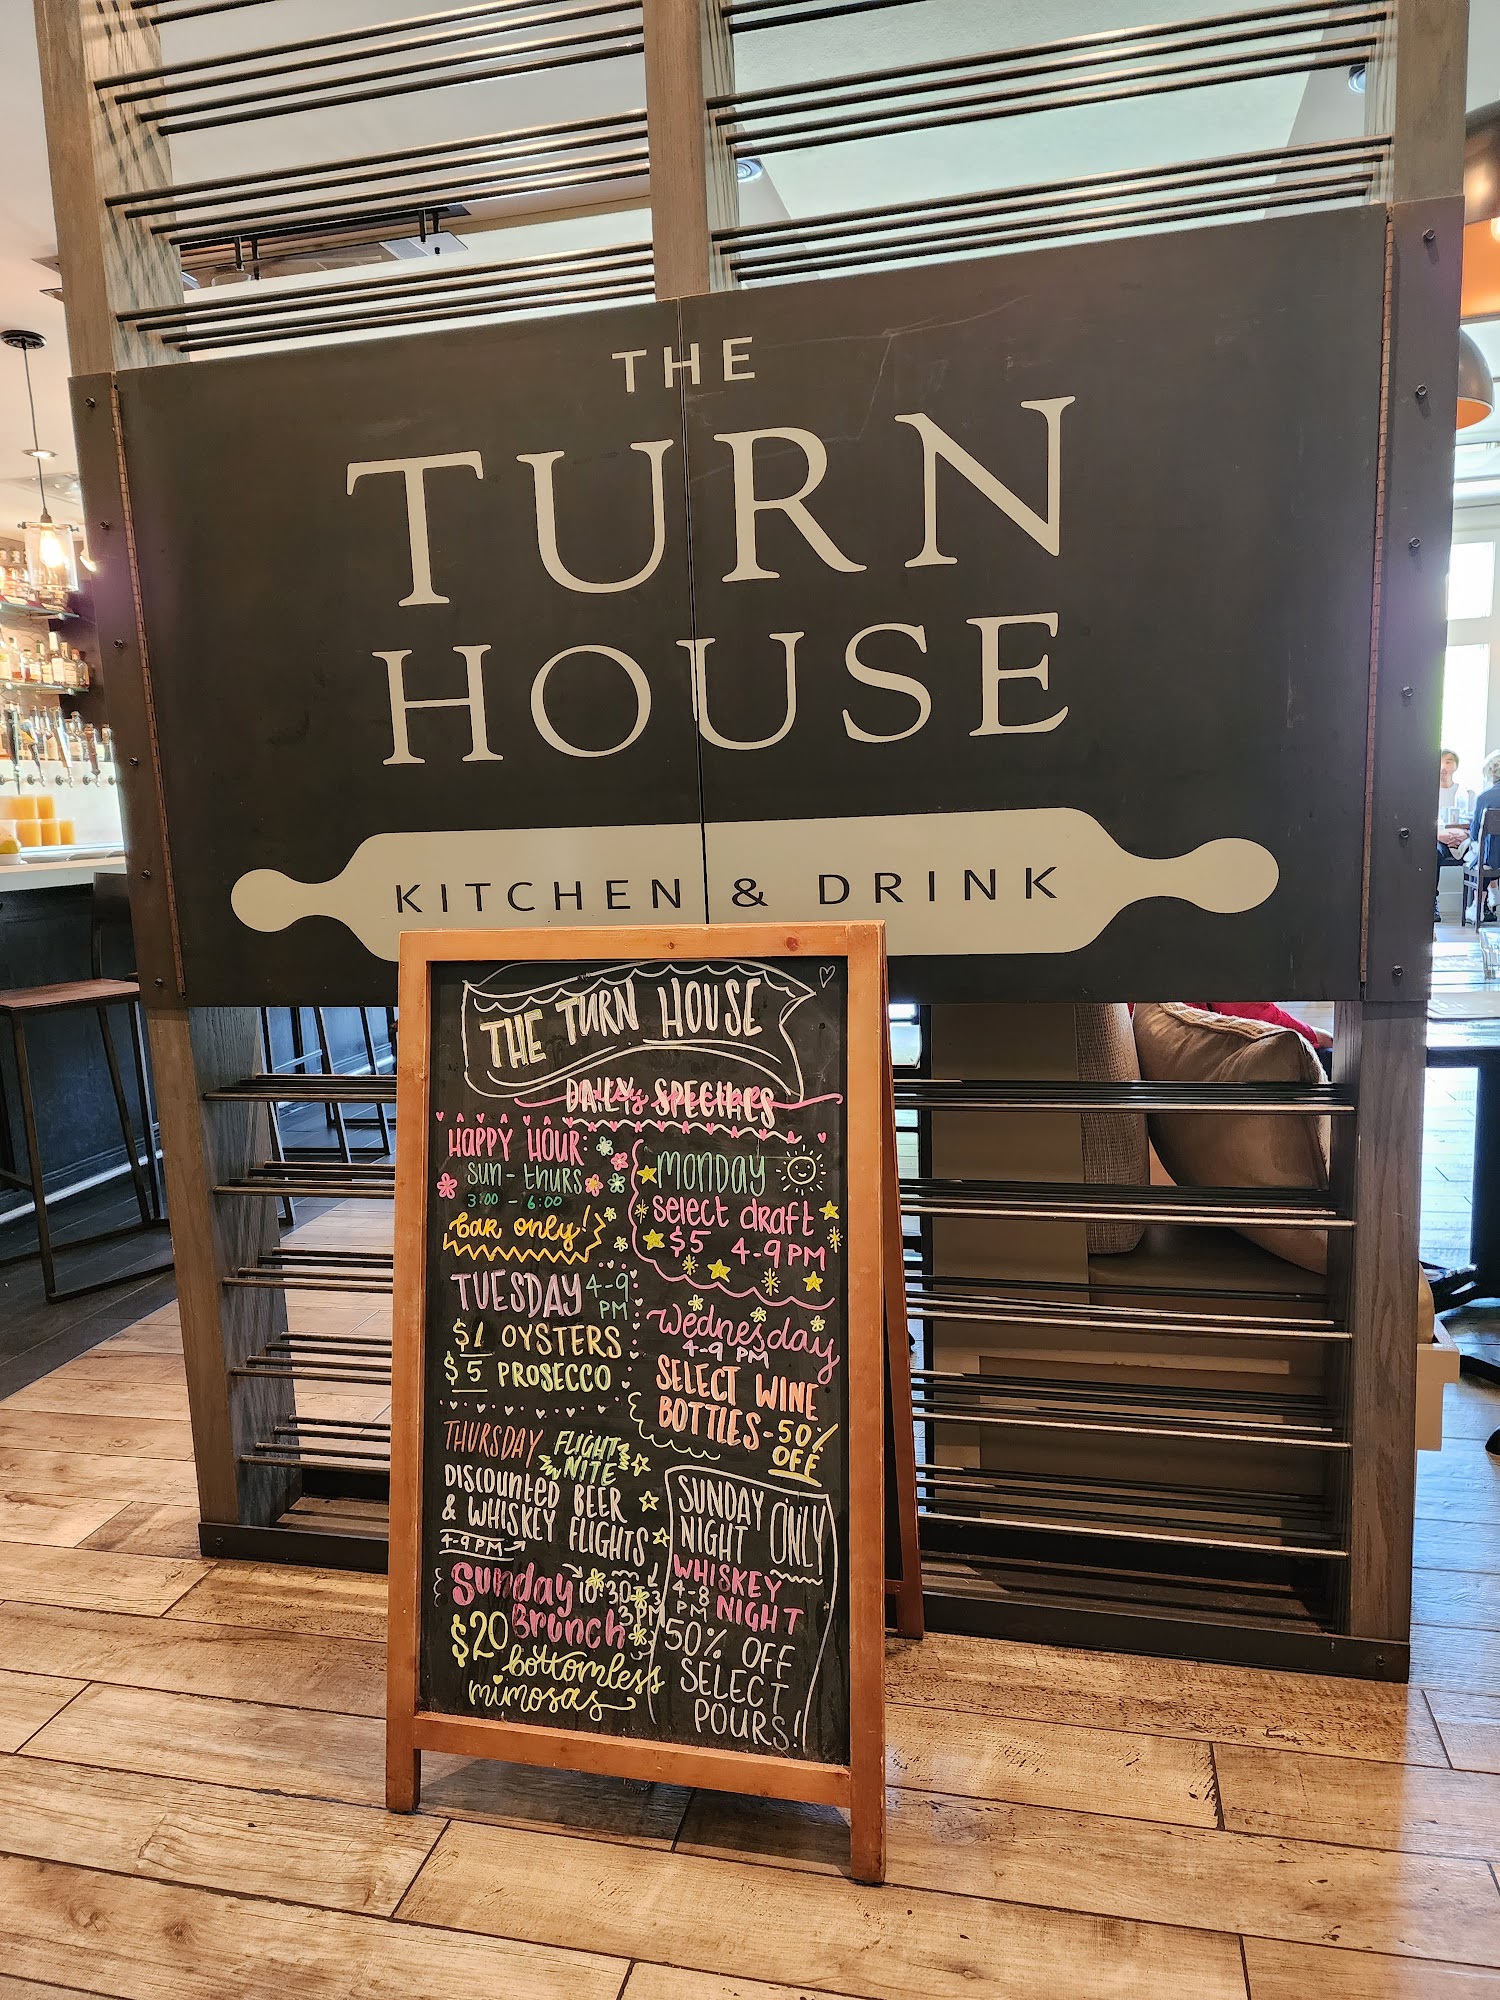 THE
TURN
HOUSE
KITCHEN & DRINK
THE TURN HOUSE
DAILY SPECIALS
HAPPY HOUR:
SUN - THURS
3:00 - 6:00
bar only!
MONDAY
select draft
$5 4-9PM
TUESDAY 4-9
PM
$1 OYSTERS
$5 PROSECCO
Wednesday
4-9 PM
SELECT WINE
BOTTLES - 50%
OFF
THURSDAY FLIGHT
NITE
DISCOUNTED BEER
& WHISKEY FLIGHTS
4-9PM
Sunday 10:30-
3PM
Brunch
$20 bottomless
mimosas
SUNDAY
NIGHT ONLY
WHISKEY
4-8
PM NIGHT
50% OFF
SELECT
POURS!